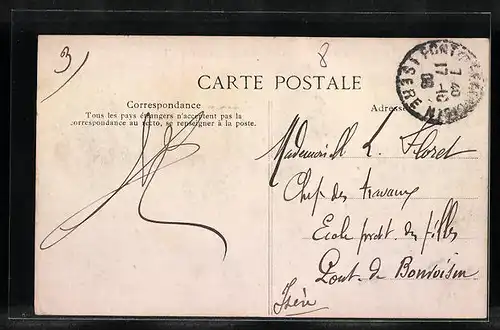 3)
8
CARTE POSTALE
Correspondance
Tous les pays étrangers n'acceptent pas la
correspondance au recto, se renseigner à la poste.
Adresse
Mademoiselle L. Floret
Chef des travaux
Ecole prat. des filles
Pont de Bonvoisin
Isère
7 40
17 -10
08
(ISERE)